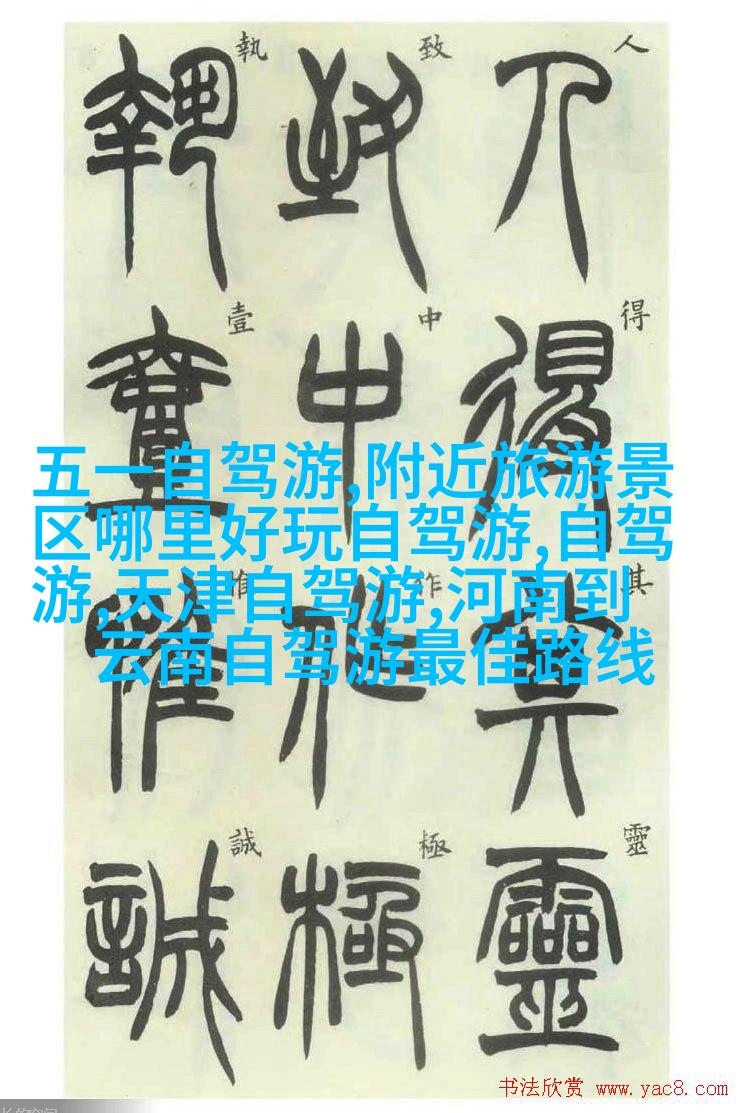 人得其靈
致中作極
執壹惟誠
五一自驾游,附近旅游景
区哪里好玩自驾游,自驾
游,天津自驾游,河南到
云南自驾游最佳路线
书法欣赏 www.yac8.com